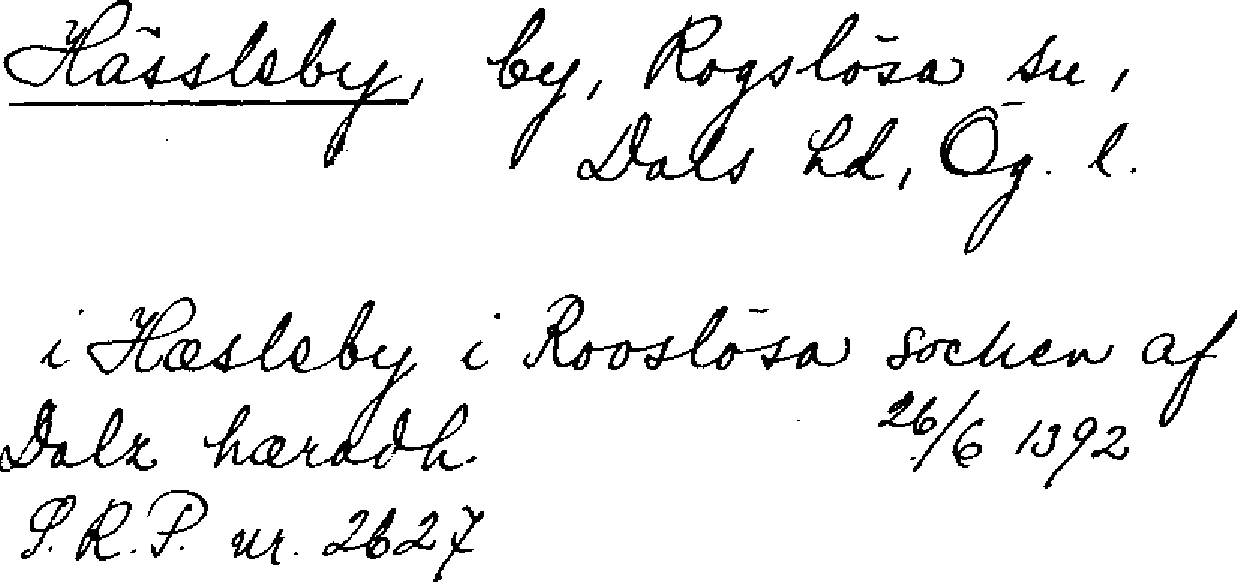 Hässleby, by, Rogslösa sn,
Dals hd, Ög. l.
i Hæsleby i Rooslösa sochen af
Dalz hæradh. 26/6 1392
S.R.P. nr. 2627